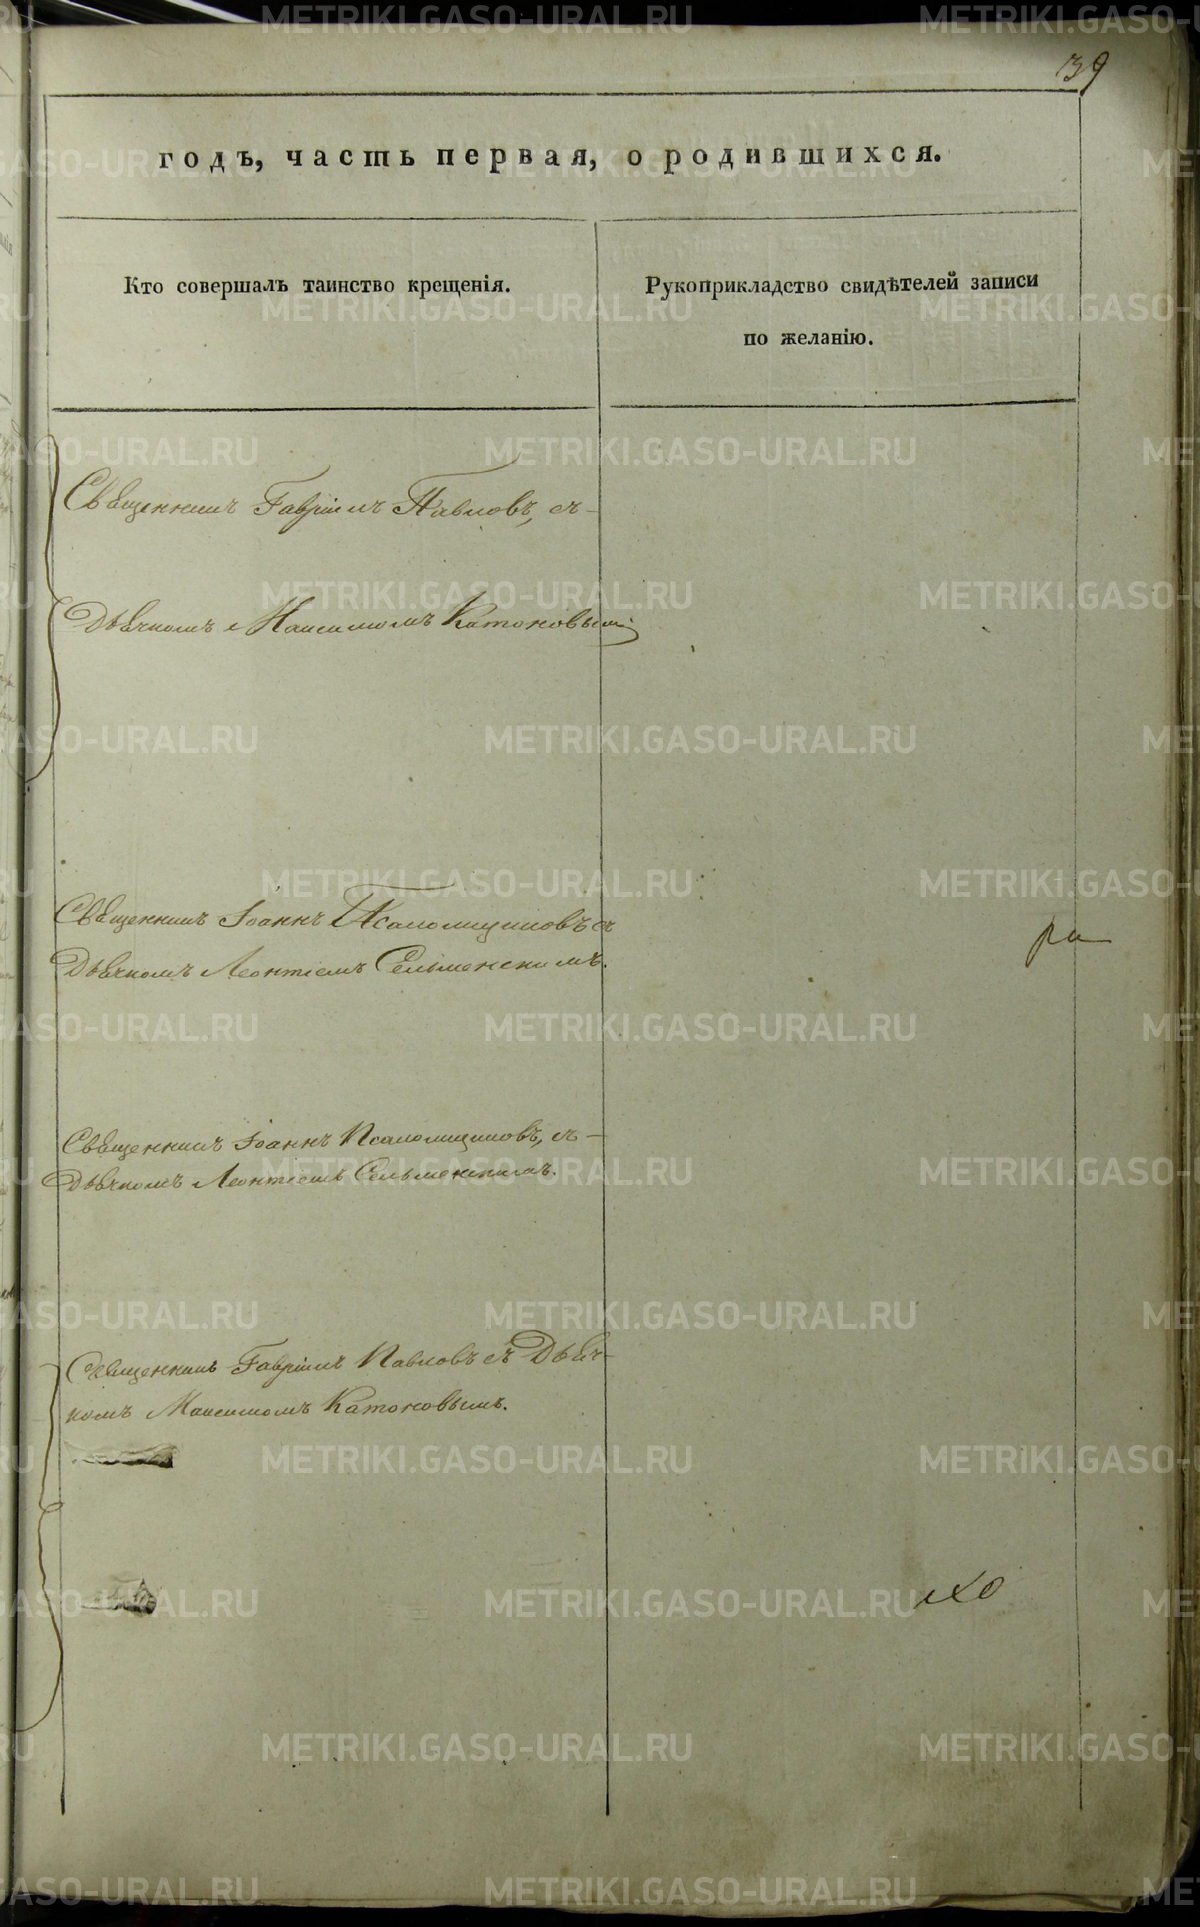 39
годъ, часть первая, о родившихся.
Кто совершалъ таинство крещенія.
Рукоприкладство свидѣтелей записи
по желанію.
Священникъ Гавріилъ Павловъ, съ
Дьячкомъ Максимомъ Катоновымъ
Священникъ Іоаннъ Псаломщиковъ съ
Дьячкомъ Леонтіемъ Сельменскимъ.
Священникъ Іоаннъ Псаломщиковъ, съ
Дьячкомъ Леонтіемъ Сельменскимъ.
Священникъ Гавріилъ Павловъ съ Дьяч-
комъ Максимомъ Катоновымъ.
METRIKI.GASO-URAL.RU